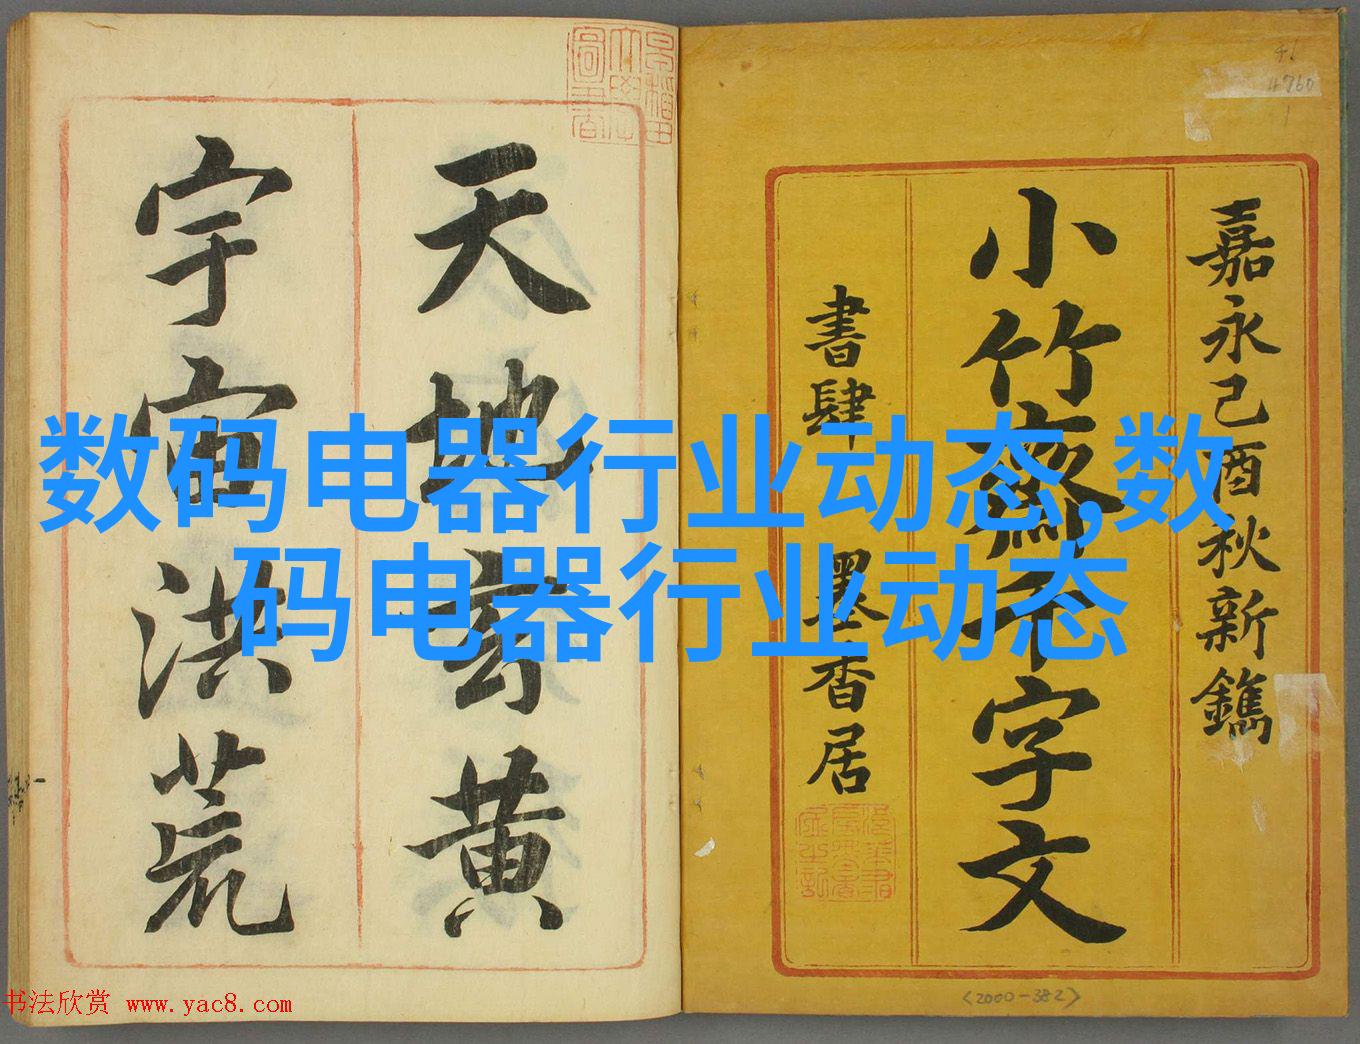 嘉永己酉秋新鐫
小竹齋千字文
書肆 墨香居
天地玄黃
宇宙洪荒
数码电器行业动态,数
码电器行业动态
书法欣赏 www.yac8.com
46
4760
<2000-382>